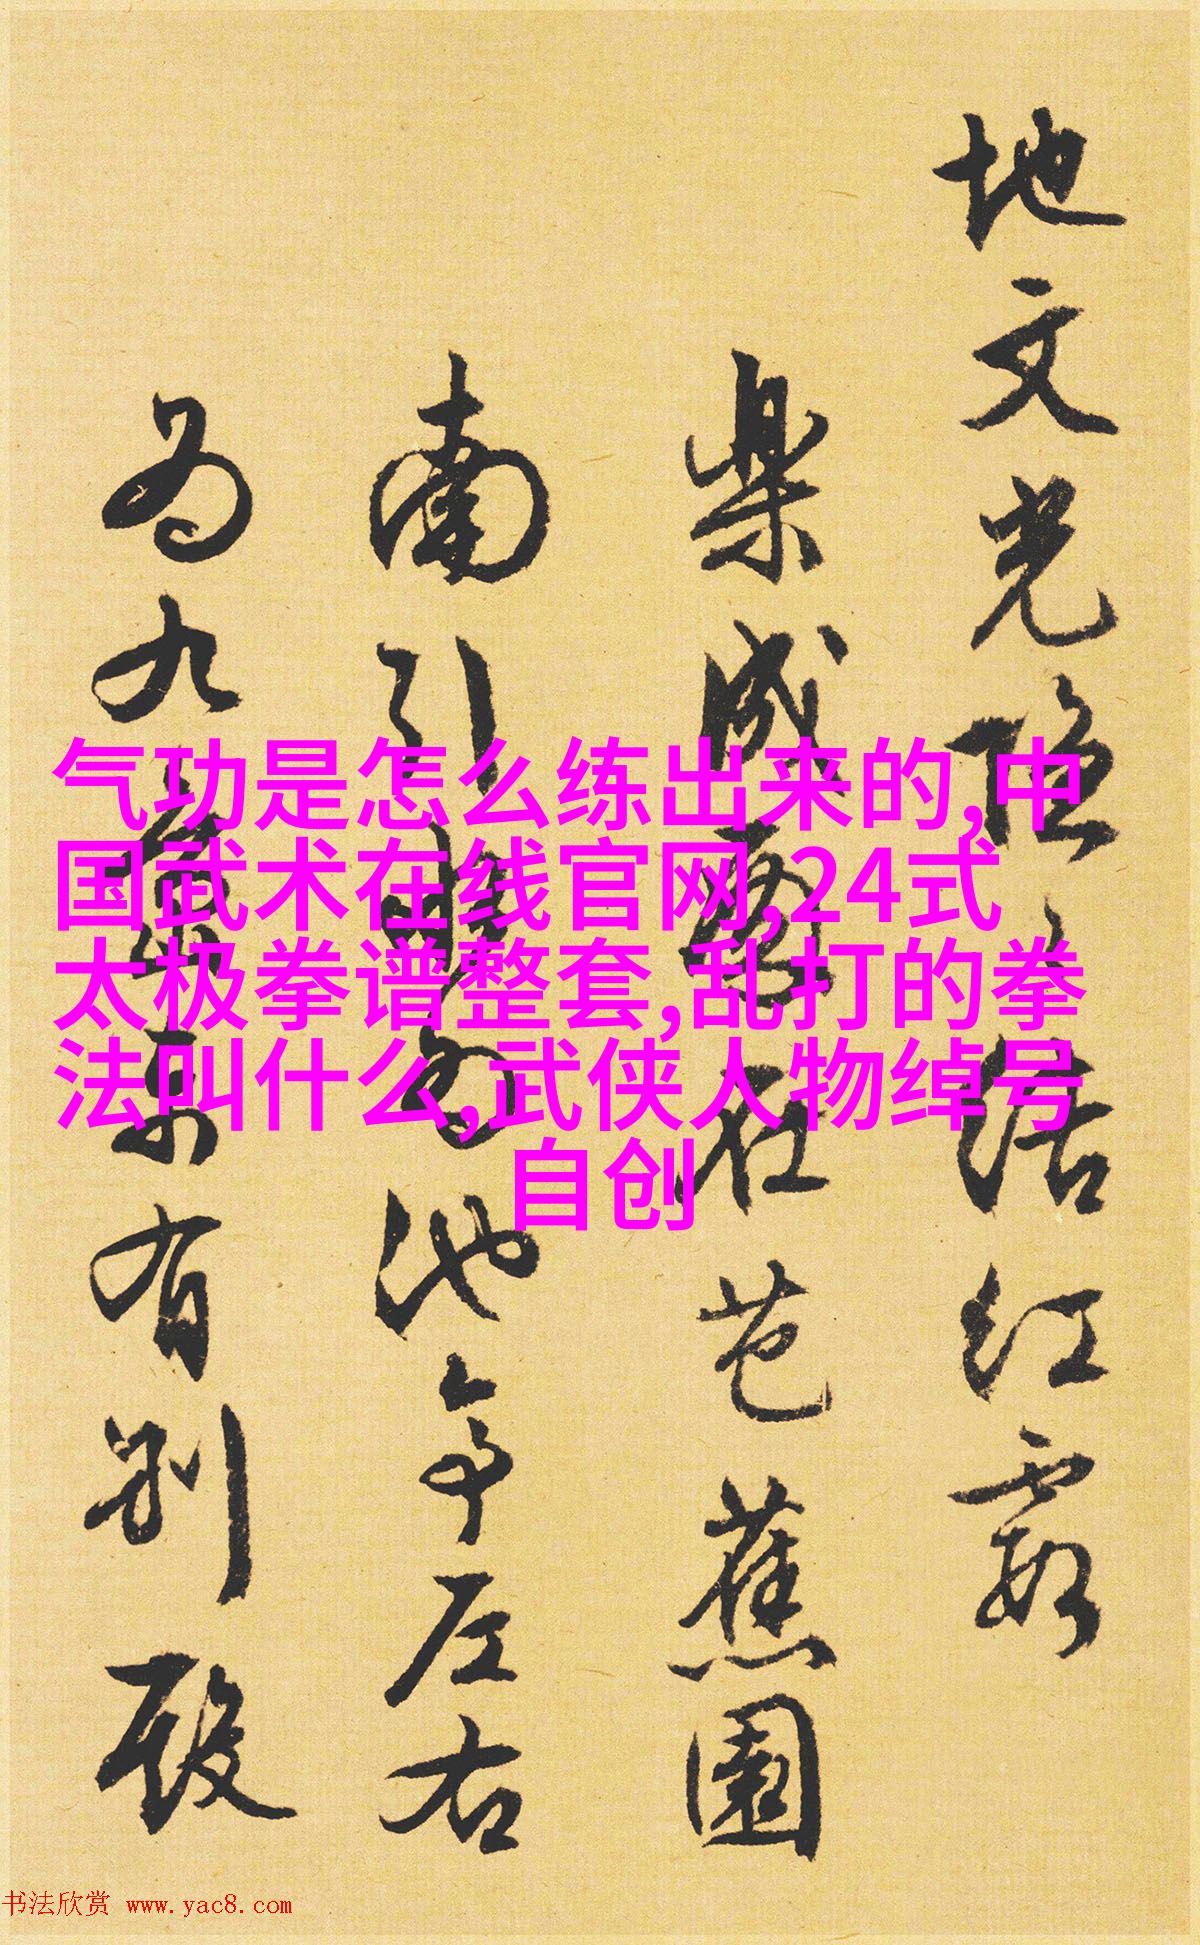 地文光隐结红霞
樂成在芭蕉園
南引池亭左右
为九有别殿
气功是怎么练出来的,中
国武术在线官网,24式
太极拳谱整套,乱打的拳
法叫什么,武侠人物绰号
自创
书法欣赏 www.yac8.com